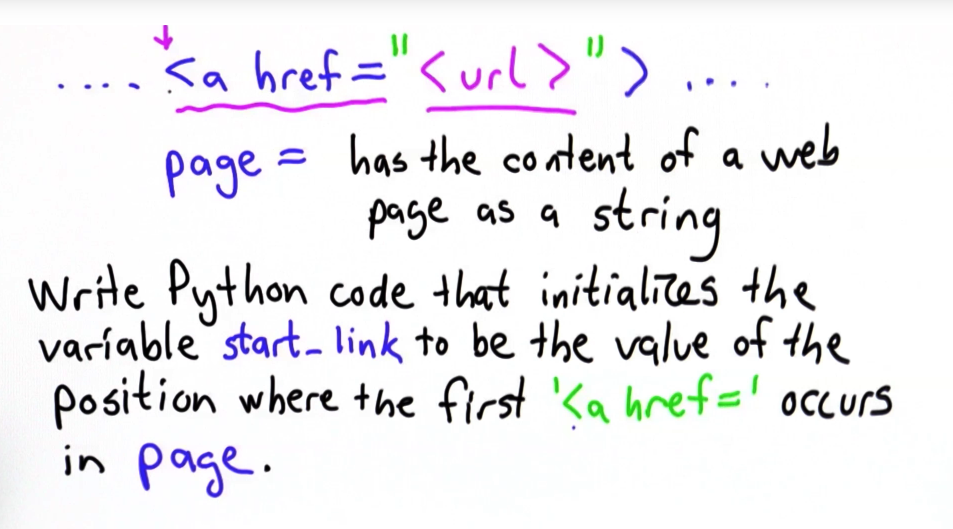 .... <a href="<url>"> ....
page = has the content of a web
page as a string
Write Python code that initializes the
variable start_link to be the value of the
position where the first '<a href=' occurs
in page.